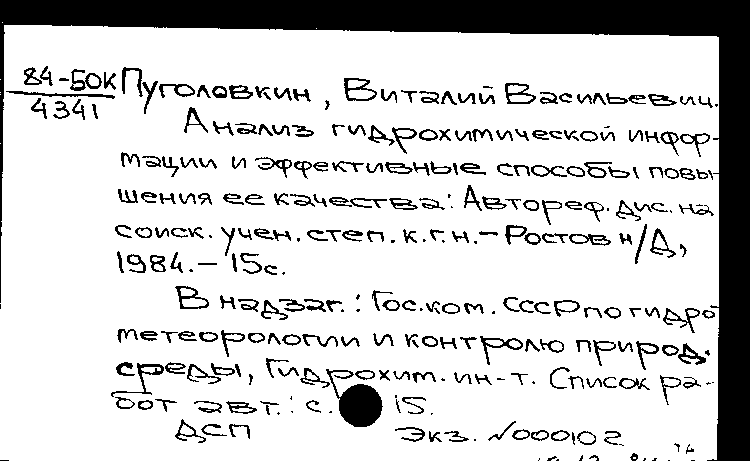 84-БОК Пуголовкин, Виталий Васильевич.
4341
Анализ гидрохимической инфор-
мации и эффективные способы повы-
шения ее качества: Автореф. дис. на
соиск. учен. степ. к.г.н. - Ростов н/Д,
1984. - 15с.
В надзаг.: Гос. ком. СССР по гидро-
метеорологии и контролю природ.
среды, Гидрохим. ин-т. Список ра-
бот авт.: с. 15.
ДСП Экз. №000102